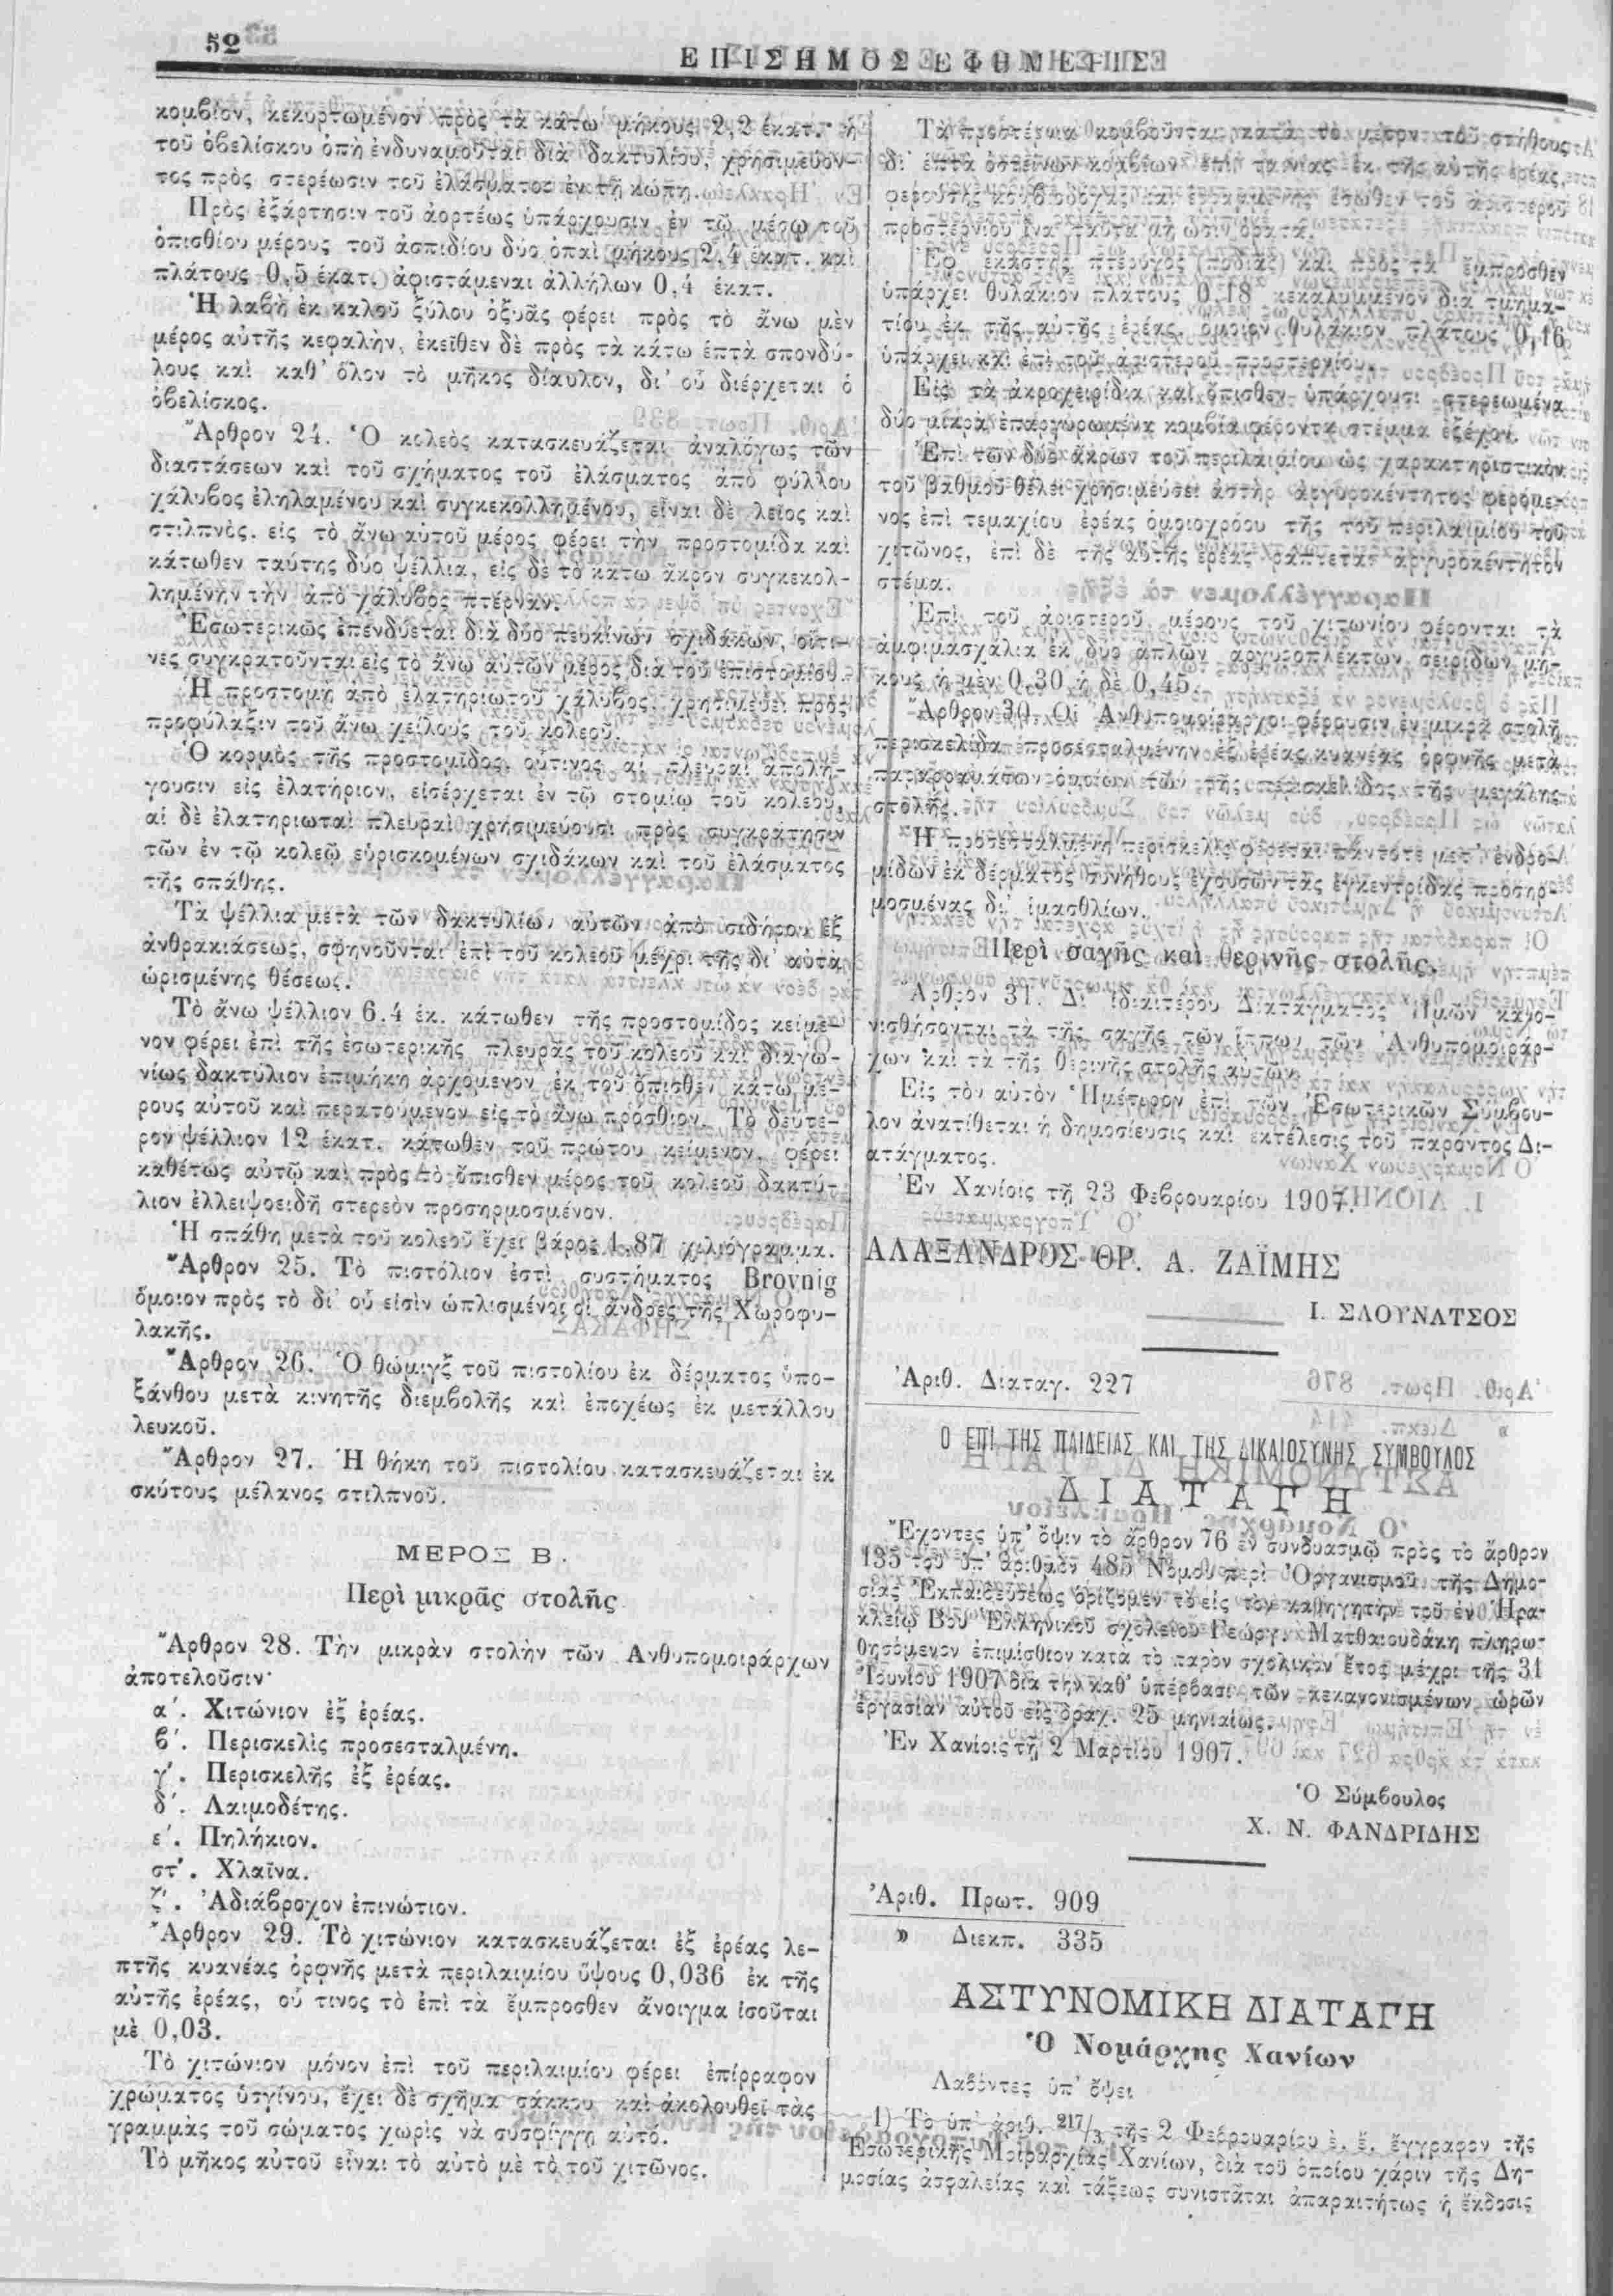 52
ΕΠΙΣΗΜΟΣ ΕΦΗΜΕΡΙΣ
κομβίον, κεκυρτωμένον πρὸς τὰ κάτω μήκους 2,2 ἑκατ. ἡ
τοῦ ὀβελίσκου ὀπὴ ἐνδυναμοῦται διὰ δακτυλίου, χρησιμεύον-
τος πρὸς στερέωσιν τοῦ ἐλάσματος ἐν τῇ κώπῃ.
Πρὸς ἐξάρτησιν τοῦ ἀορτέως ὑπάρχουσιν ἐν τῷ μέσῳ τοῦ
ὀπισθίου μέρους τοῦ ἀσπιδίου δύο ὀπαὶ μήκους 2,4 ἑκατ. καὶ
πλάτους 0,5 ἑκατ. ἀφιστάμεναι ἀλλήλων 0,4 ἑκατ.
Ἡ λαβὴ ἐκ καλοῦ ξύλου ὀξυᾶς φέρει πρὸς τὸ ἄνω μὲν
μέρος αὐτῆς κεφαλὴν, ἐκεῖθεν δὲ πρὸς τὰ κάτω ἑπτὰ σπονδύ-
λους καὶ καθ' ὅλον τὸ μῆκος δίαυλον, δι' οὗ διέρχεται ὁ
ὀβελίσκος.
Ἄρθρον 24. Ὁ κολεὸς κατασκευάζεται ἀναλόγως τῶν
διαστάσεων καὶ τοῦ σχήματος τοῦ ἐλάσματος ἀπὸ φύλλου
χάλυβος ἐληλαμένου καὶ συγκεκολλημένου, εἶναι δὲ λεῖος καὶ
στιλπνὸς. εἰς τὸ ἄνω αὐτοῦ μέρος φέρει τὴν προστομίδα καὶ
κάτωθεν ταύτης δύο ψέλλια, εἰς δὲ τὸ κάτω ἄκρον συγκεκολ-
λημένην τὴν ἀπὸ χάλυβος πτέρναν.
Ἐσωτερικῶς ἐπενδύεται διὰ δύο πευκίνων σχιδάκων, οἵτι-
νες συγκρατοῦνται εἰς τὸ ἄνω αὐτῶν μέρος διὰ τοῦ
Ἡ προστομὴ ἀπὸ ἐλατηριωτοῦ χάλυβος, χρησιμεύει πρὸς
προφύλαξιν τοῦ ἄνω χείλους τοῦ κολεοῦ.
Ὁ κορμὸς τῆς προστομίδος, οὕτινος αἱ πλευραὶ ἀπολή-
γουσιν εἰς ἐλατήριον, εἰσέρχεται ἐν τῷ στομίῳ τοῦ κολεοῦ,
αἱ δὲ ἐλατηριωταὶ πλευραὶ χρησιμεύουσι πρὸς συγκράτησιν
τῶν ἐν τῷ κολεῷ εὑρισκομένων σχιδάκων καὶ τοῦ ἐλάσματος
τῆς σπάθης.
Τὰ ψέλλια μετὰ τῶν δακτυλίων αὐτῶν ἀπὸ σιδήρου ἐξ
ἀνθρακιάσεως, σφηνοῦνται ἐπὶ τοῦ κολεοῦ μέχρι τῆς δι' αὐτὰ
ὡρισμένης θέσεως.
Τὸ ἄνω ψέλλιον 6.4 ἑκ. κάτωθεν τῆς προστομίδος κείμε-
νον φέρει ἐπὶ τῆς ἐσωτερικῆς πλευρᾶς τοῦ κολεοῦ καὶ διαγω-
νίως δακτύλιον ἐπιμήκη ἀρχόμενον ἐκ τοῦ ὄπισθεν κάτω μέ-
ρους αὐτοῦ καὶ περατούμενον εἰς τὸ ἄνω πρόσθιον. Τὸ δεύτε-
ρον ψέλλιον 12 ἑκατ. κάτωθεν τοῦ πρώτου κείμενον, φέρει
καθέτως αὐτῷ καὶ πρὸς τὸ ὄπισθεν μέρος τοῦ κολεοῦ δακτύ-
λιον ἐλλειψοειδῆ στερεὸν προσηρμοσμένον.
Ἡ σπάθη μετὰ τοῦ κολεοῦ ἔχει βάρος 1,87 χιλιόγραμμα.
Ἄρθρον 25. Τὸ πιστόλιον ἐστὶ συστήματος Brovnig
ὅμοιον πρὸς τὸ δι' οὗ εἰσὶν ὡπλισμένοι οἱ ἄνδρες τῆς Χωροφυ-
λακῆς.
Ἄρθρον 26. Ὁ θώμιγξ τοῦ πιστολίου ἐκ δέρματος ὑπο-
ξάνθου μετὰ κινητῆς διεμβολῆς καὶ ἐποχέως ἐκ μετάλλου
λευκοῦ.
Ἄρθρον 27. Ἡ θήκη τοῦ πιστολίου κατασκευάζεται ἐκ
σκύτους μέλανος στιλπνοῦ.
ΜΕΡΟΣ Β.
Περὶ μικρᾶς στολῆς
Ἄρθρον 28. Τὴν μικρὰν στολὴν τῶν Ἀνθυπομοιράρχων
ἀποτελοῦσιν·
α΄. Χιτώνιον ἐξ ἐρέας.
β΄. Περισκελὶς προσεσταλμένη.
γ΄. Περισκελῆς ἐξ ἐρέας.
δ΄. Λαιμοδέτης.
ε΄. Πηλήκιον.
στ΄. Χλαῖνα.
ζ΄. Ἀδιάβροχον ἐπινώτιον.
Ἄρθρον 29. Τὸ χιτώνιον κατασκευάζεται ἐξ ἐρέας λε-
πτῆς κυανέας ὀρφνῆς μετὰ περιλαιμίου ὕψους 0,036 ἐκ τῆς
αὐτῆς ἐρέας, οὗ τινος τὸ ἐπὶ τὰ ἔμπροσθεν ἄνοιγμα ἰσοῦται
μὲ 0,03.
Τὸ χιτώνιον μόνον ἐπὶ τοῦ περιλαιμίου φέρει ἐπίρραφον
χρώματος ὑσγίνου, ἔχει δὲ σχῆμα σάκκου καὶ ἀκολουθεῖ τὰς
γραμμὰς τοῦ σώματος χωρὶς νὰ συσφίγγῃ αὐτό.
Τὸ μῆκος αὐτοῦ εἶναι τὸ αὐτὸ μὲ τὸ τοῦ χιτῶνος.
Τὰ προστέρνια κομβοῦνται κατὰ τὸ μέσον τοῦ στήθους
δι' ἑπτὰ ὀστεΐνων κομβίων ἐπὶ ταινίας ἐκ τῆς αὐτῆς ἐρέας,
φερούσης κομβιοδόχας καὶ ἐρραμμένης ἔσωθεν τοῦ ἀριστεροῦ
προστερνίου ἵνα ταῦτα μὴ ὦσιν ὁρατά.
Ἐφ' ἑκάστης πτέρυγος (ποδιᾶς) καὶ πρὸς τὰ ἔμπροσθεν
ὑπάρχει θυλάκιον πλάτους 0,18 κεκαλυμμένον διὰ τμημα-
τίου ἐκ τῆς αὐτῆς ἐρέας, ὅμοιον θυλάκιον πλάτους 0,16
ὑπάρχει καὶ ἐπὶ τοῦ ἀριστεροῦ προστερνίου.
Εἰς τὰ ἀκροχειρίδια καὶ ὄπισθεν ὑπάρχουσι στερεωμένα
δύο μικρὰ ἐπαργυρωμένα κομβία φέροντα στέμμα ἐξέχον.
Ἐπὶ τῶν δύο ἄκρων τοῦ περιλαιμίου ὡς χαρακτηριστικὸν
τοῦ βαθμοῦ θέλει χρησιμεύσει ἀστὴρ ἀργυροκέντητος φερόμε-
νος ἐπὶ τεμαχίου ἐρέας ὁμοιοχρόου τῆς τοῦ περιλαιμίου τοῦ
χιτῶνος, ἐπὶ δὲ τῆς αὐτῆς ἐρέας ῥάπτεται ἀργυροκέντητον
στέμα.
Ἐπὶ τοῦ ἀριστεροῦ μέρους τοῦ χιτωνίου φέρονται τὰ
ἀμφιμασχάλια ἐκ δύο ἁπλῶν ἀργυροπλέκτων σειρίδων μή-
κους ἡ μὲν 0,30 ἡ δὲ 0,45.
Ἄρθρον 30. Οἱ Ἀνθυπομοίραρχοι φέρουσιν ἐν μικρᾷ στολῇ
περισκελίδα προσεσταλμένην ἐξ ἐρέας κυανέας ὀρφνῆς μετὰ
παραρραμάτων ὁμοίων τῶν τῆς περισκελίδος τῆς μεγάλης
στολῆς.
Ἡ προσεσταλμένη περισκελὶς φέρεται πάντοτε μετ' ἐνδρο-
μίδων ἐκ δέρματος συνήθους ἐχουσῶν τὰς ἐγκεντρίδας προσηρ-
μοσμένας δι' ἱμασθλίων.
Περὶ σαγῆς καὶ θερινῆς στολῆς.
Ἄρθρον 31. Δι' ἰδιαιτέρου Διατάγματος Ἡμῶν κανο-
νισθήσονται τὰ τῆς σαγῆς τῶν ἵππων τῶν Ἀνθυπομοιράρ-
χων καὶ τὰ τῆς θερινῆς στολῆς αὐτῶν.
Εἰς τὸν αὐτὸν Ἡμέτερον ἐπὶ τῶν Ἐσωτερικῶν Σύμβου-
λον ἀνατίθεται ἡ δημοσίευσις καὶ ἐκτέλεσις τοῦ παρόντος Δι-
ατάγματος.
Ἐν Χανίοις τῇ 23 Φεβρουαρίου 1907.
ΑΛΑΞΑΝΔΡΟΣ ΘΡ. Α. ΖΑΪΜΗΣ
Ι. ΣΛΟΥΝΑΤΣΟΣ
Ἀριθ. Διαταγ. 227
Ο ΕΠΙ ΤΗΣ ΠΑΙΔΕΙΑΣ ΚΑΙ ΤΗΣ ΔΙΚΑΙΟΣΥΝΗΣ ΣΥΜΒΟΥΛΟΣ
ΔΙΑΤΑΓΗ
Ἔχοντες ὑπ' ὄψιν τὸ ἄρθρον 76 ἐν συνδυασμῷ πρὸς τὸ ἄρθρον
135 τοῦ ὑπ' ἀριθμὸν 485 Νόμου περὶ Ὀργανισμοῦ τῆς Δημο-
σίας Ἐκπαιδεύσεως ὁρίζομεν τὸ εἰς τὸν καθηγητὴν τοῦ ἐν Ἡρα-
κλείῳ Βου Ἑλληνικοῦ σχολείου Γεώργ. Ματθαιουδάκη πληρω-
θησόμενον ἐπιμίσθιον κατὰ τὸ παρὸν σχολικὸν ἔτος μέχρι τῆς 31
Ἰουνίου 1907 διὰ τὴν καθ' ὑπέρβασιν τῶν κεκανονισμένων ὡρῶν
ἐργασίαν αὐτοῦ εἰς δραχ. 25 μηνιαίως.
Ἐν Χανίοις τῇ 2 Μαρτίου 1907.
Ὁ Σύμβουλος
Χ. Ν. ΦΑΝΔΡΙΔΗΣ
Ἀριθ. Πρωτ. 909
» Διεκπ. 335
ΑΣΤΥΝΟΜΙΚΗ ΔΙΑΤΑΓΗ
Ὁ Νομάρχης Χανίων
Λαβόντες ὑπ' ὄψει
1) Τὸ ὑπ' ἀριθ. 217/3 τῆς 2 Φεβρουαρίου ἐ. ἔ. ἔγγραφον τῆς
Ἐσωτερικῆς Μοιραρχίας Χανίων, διὰ τοῦ ὁποίου χάριν τῆς Δη-
μοσίας ἀσφαλείας καὶ τάξεως συνιστᾶται ἀπαραιτήτως ἡ ἔκδοσις